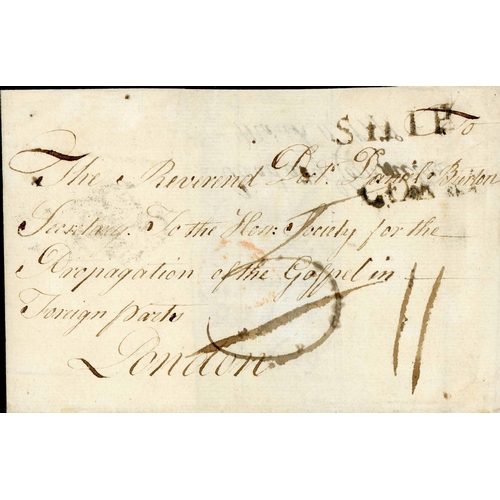 To
SHIP
The Reverend Doct. Daniel Burton
Secretary. To the Hon: Society for the
Propagation of the Gospel in
Foreign parts
London
11